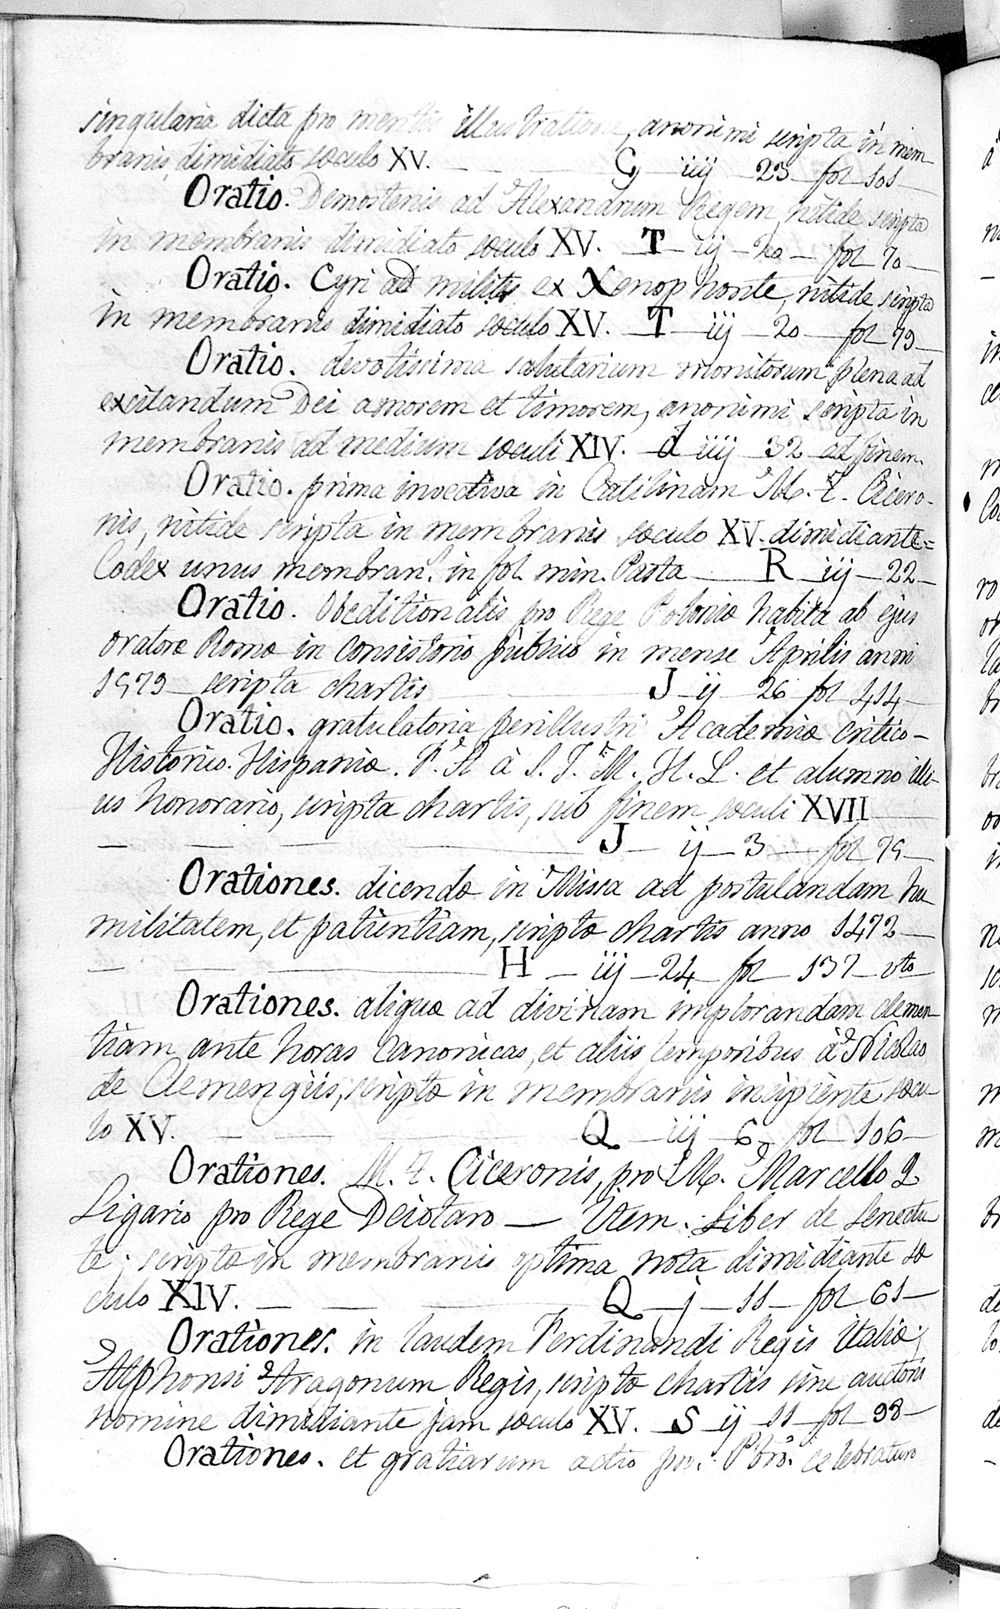 singularia dicta pro mentis illustratione, anonimi scripta in mem
branis, dimidiato sæculo XV. — G iiij 23 fol 101
Oratio. Demostenis ad Alexandrum Regem, nitide scripta
in membranis dimidiato sæculo XV. T — iij — 20 — fol 70 —
Oratio. Cyri ad milites ex Xenophonte, nitide scripta
in membranis dimidiato sæculo XV. T — iij — 20 — fol 79 —
Oratio. devotissima salutarium monitorum plena ad
excitandum Dei amorem et timorem, anonimi scripta in
membranis ad medium sæculi XIV. d iiij 32 ad finem.
Oratio. prima invectiva in Catilinam M. T. Cicero-
nis, nitide scripta in membranis sæculo XV. dimidiante=
Codex unus membran. in fol. min. Pasta — R iij — 22 —
Oratio. Obeditionalis pro Rege Poloniæ habita ab ejus
oratore Romæ in consistorio publico in mense Aprilis anni
1979 scripta chartis — J — ij — 26 fol 414 —
Oratio. gratulatoria perillustri Academiæ critico-
Historico. Hispaniæ. P. A à S. J. M. H. L. et alumno illi-
us honorario, scripta chartis, sub finem sæculi XVII
— — J — ij — 3 — fol 75 —
Orationes. dicendæ in Missa ad postulandam hu
militatem, et patientiam, scriptæ chartis anno 1472 —
— H — iij — 24 fol 137 vto
Orationes. aliquæ ad divinam implorandam clemen-
tiam ante horas canonicas, et aliis temporibus à Nicolao
de Clemengiis, scriptæ in membranis insipiente sæcu-
lo XV. — Q — iij — 6 — fol 106 —
Orationes. M. T. Ciceronis, pro M. Marcello Q
Ligario pro Rege Deiotaro — Item. Liber de senectu
te; scriptæ in membranis optima nota dimidiante sæ
culo XIV. — Q — j — 11 — fol 61 —
Orationes. in laudem Ferdinandi Regis Italiæ;
Alphonsi Aragonum Regis, scriptæ chartis sine auctoris
nomine dimidiante jam sæculo XV. S ij — 11 — fol 98 —
Orationes. et gratiarum actio pro. Pbro. celebraturo